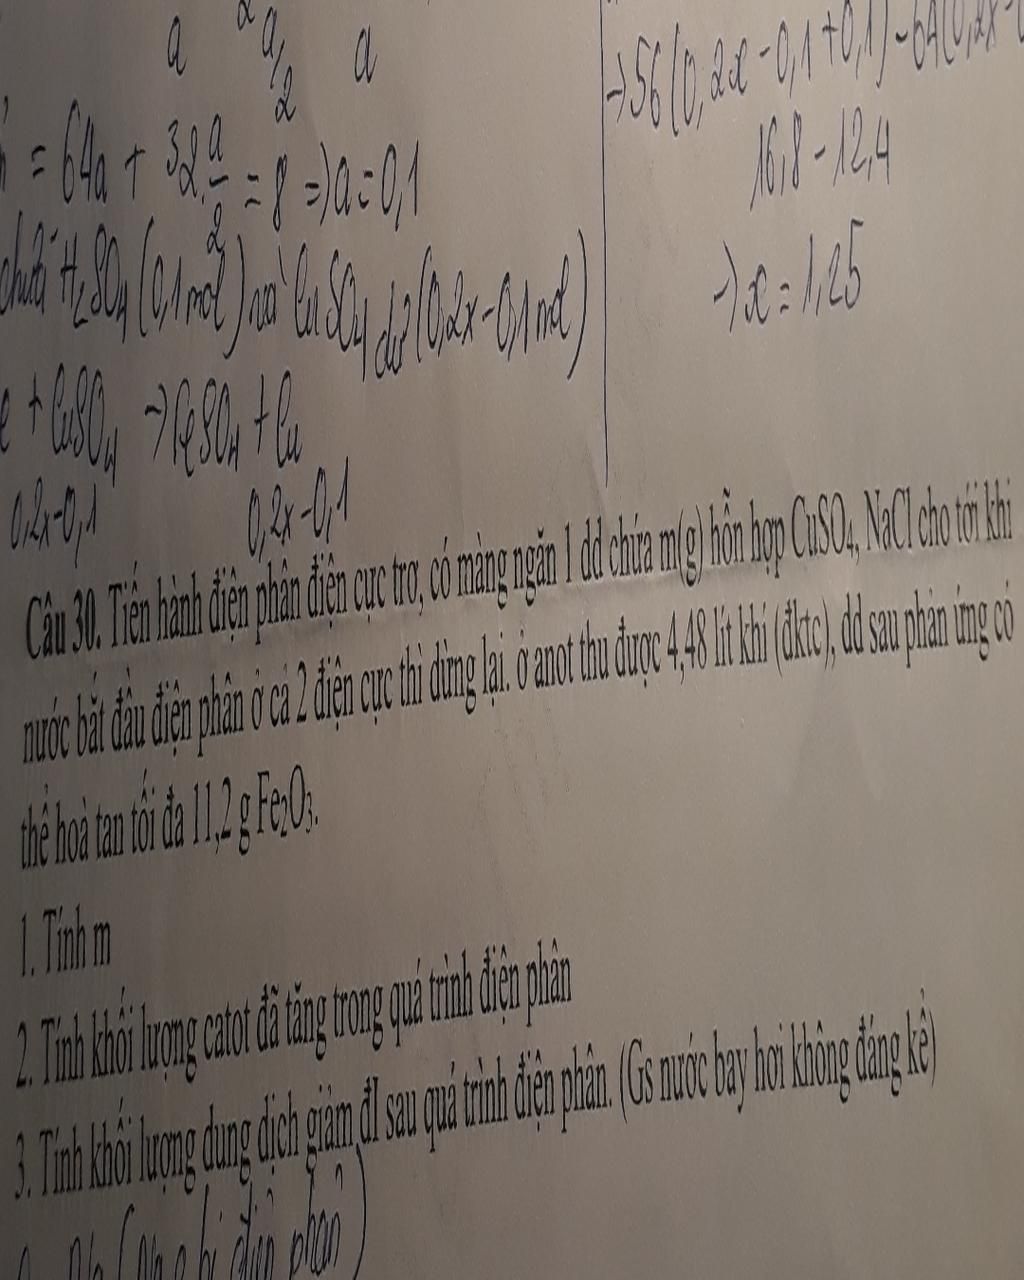 a a/2 a
= 64a + 32.a/2 = 8 => a = 0,1
chứa H2SO4 (0,1 mol) và CuSO4 dư (0,2x-0,1 mol)
+ CuSO4 → FeSO4 + Cu
0,2x-0,1 0,2x-0,1
→ 56(0,2x-0,1+0,1) - 64(0,2x-
16,8 - 12,4
→ x = 1,25
Câu 30. Tiến hành điện phân điện cực trơ, có màng ngăn 1 dd chứa m(g) hỗn hợp CuSO4, NaCl cho tới khi
nước bắt đầu điện phân ở cả 2 điện cực thì dừng lại. ở anot thu được 4,48 lít khí (đktc), dd sau phản ứng có
thể hoà tan tối đa 11,2 g Fe2O3.
1. Tính m
2. Tính khối lượng catot đã tăng trong quá trình điện phân
3. Tính khối lượng dung dịch giảm đI sau quá trình điện phân. (Gs nước bay hơi không đáng kể)
bị điện phân)